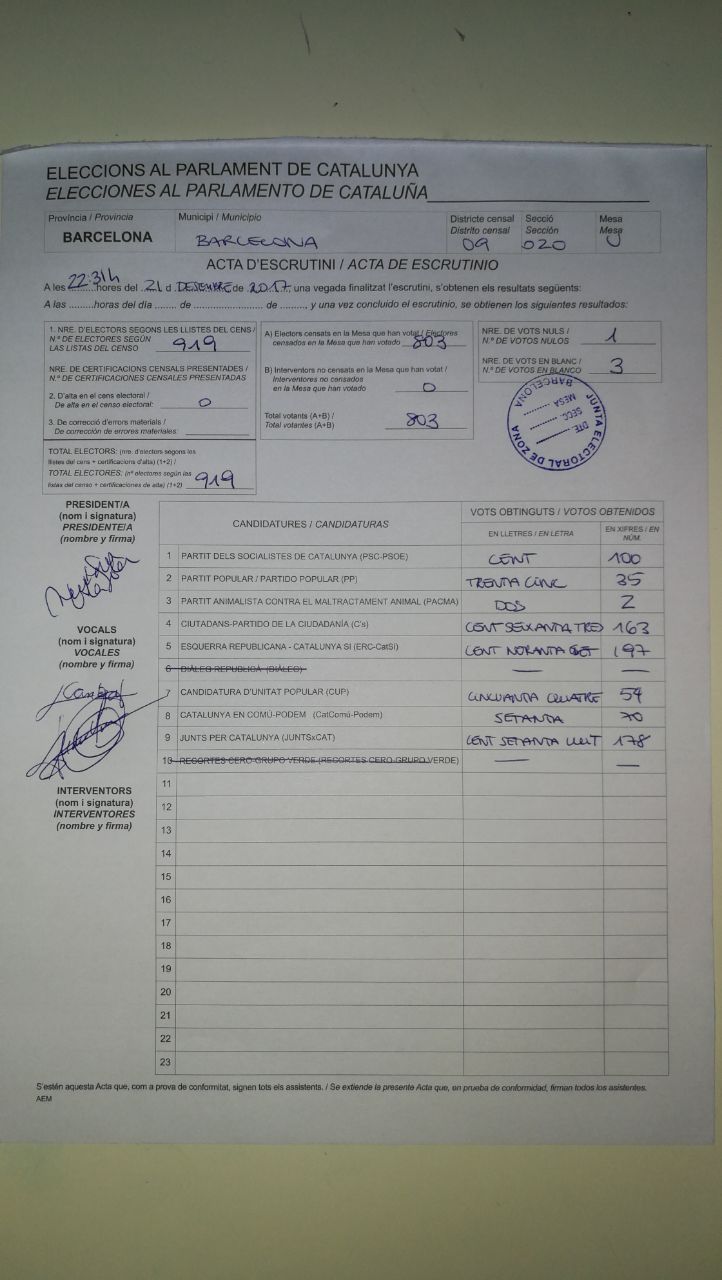 ELECCIONS AL PARLAMENT DE CATALUNYA
ELECCIONES AL PARLAMENTO DE CATALUÑA
Província / Provincia
BARCELONA
Municipi / Municipio
BARCELONA
Districte censal
Distrito censal
09
Secció
Sección
020
Mesa
Mesa
U
ACTA D'ESCRUTINI / ACTA DE ESCRUTINIO
A les 22:31h hores del 21 d DESEMBRE de 2017, una vegada finalitzat l'escrutini, s'obtenen els resultats següents:
A las ........horas del día ....... de ....................... de ........... y una vez concluido el escrutinio, se obtienen los siguientes resultados:
1. NRE. D'ELECTORS SEGONS LES LLISTES DEL CENS /
N.º DE ELECTORES SEGÚN
LAS LISTAS DEL CENSO 919
NRE. DE CERTIFICACIONS CENSALS PRESENTADES /
N.º DE CERTIFICACIONES CENSALES PRESENTADAS
2. D'alta en el cens electoral /
De alta en el censo electoral: 0
3. De correcció d'errors materials /
De corrección de errores materiales:
TOTAL ELECTORS: (nre. d'electors segons les
llistes del cens + certificacions d'alta) (1+2) /
TOTAL ELECTORES: (nº electores según las
listas del censo + certificaciones de alta) (1+2) 919
A) Electors censats en la Mesa que han votat / Electores
censados en la Mesa que han votado 803
B) Interventors no censats en la Mesa que han votat /
Interventores no censados
en la Mesa que han votado 0
Total votants (A+B) /
Total votantes (A+B) 803
NRE. DE VOTS NULS /
N.º DE VOTOS NULOS 1
NRE. DE VOTS EN BLANC /
N.º DE VOTOS EN BLANCO 3
JUNTA ELECTORAL DE ZONA
BARCELONA
DTE.
SECC.
MESA
PRESIDENT/A
(nom i signatura)
PRESIDENTE/A
(nombre y firma)
VOCALS
(nom i signatura)
VOCALES
(nombre y firma)
INTERVENTORS
(nom i signatura)
INTERVENTORES
(nombre y firma)
CANDIDATURES / CANDIDATURAS
VOTS OBTINGUTS / VOTOS OBTENIDOS
EN LLETRES / EN LETRA
EN XIFRES / EN
NÚM.
1 PARTIT DELS SOCIALISTES DE CATALUNYA (PSC-PSOE) CENT 100
2 PARTIT POPULAR / PARTIDO POPULAR (PP) TRENTA CINC 35
3 PARTIT ANIMALISTA CONTRA EL MALTRACTAMENT ANIMAL (PACMA) DOS 2
4 CIUTADANS-PARTIDO DE LA CIUDADANÍA (C's) CENT SEIXANTA TRES 163
5 ESQUERRA REPUBLICANA - CATALUNYA SI (ERC-CatSí) CENT NORANTA SET 197
6 DIÀLEG REPUBLICÀ (DIÀLEG) — —
7 CANDIDATURA D'UNITAT POPULAR (CUP) CINCUANTA QUATRE 54
8 CATALUNYA EN COMÚ-PODEM (CatComú-Podem) SETANTA 70
9 JUNTS PER CATALUNYA (JUNTSxCAT) CENT SETANTA VUIT 178
10 RECORTES CERO-GRUPO VERDE (RECORTES CERO-GRUPO VERDE) — —
11
12
13
14
15
16
17
18
19
20
21
22
23
S'estén aquesta Acta que, com a prova de conformitat, signen tots els assistents. / Se extiende la presente Acta que, en prueba de conformidad, firman todos los asistentes.
AEM